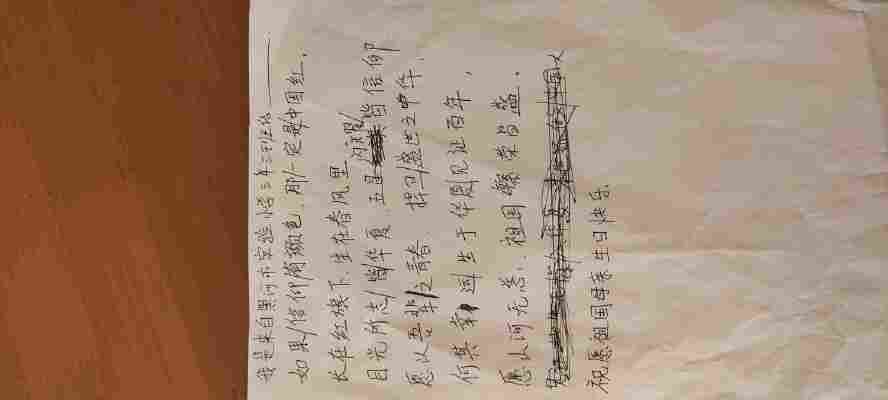 我是来自黑河市实验小学三年三班的
如果信仰有颜色,那一定是中国红。
长在红旗下,生在春风里
目光所志皆华夏,五星闪耀皆信仰
愿以吾辈之青春 捍卫盛世之中华,
何其幸 生于华夏见证百年,
愿山河无恙,祖国繁荣昌盛。
祝愿祖国母亲生日快乐